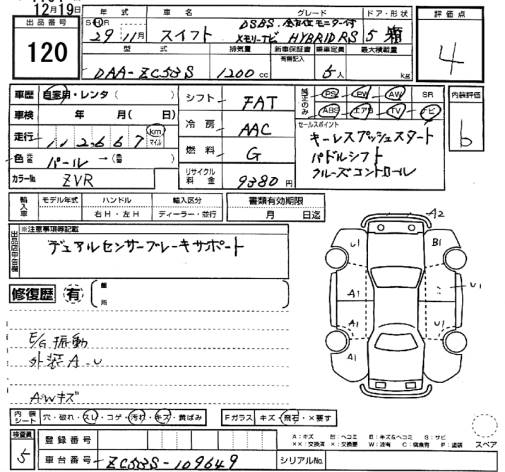 12月19日
出品番号
120
年式
車名
グレード
ドア・形状
評価点
S H R
29 11月
スイフト
DSBS. 全方位モニター付
メモリーナビ HYBRID RS
5 箱
4
型式
排気量
新車保証書
乗車定員
最大積載量
有無記入
DAA-ZC53S
1200 cc
5人
kg
車歴
自家用・レンタ ( )
シフト
FAT
純正のみ
PS
PW
AW
SR
内装評価
車検
年 月( 日)
冷房
AAC
ABS
エアB
TV
ナビ
b
走行
112667
km
マイル
セールスポイント
キーレスプッシュスタート
パドルシフト
クルーズコントロール
燃料
G
色
パール → ( )
リサイクル料金
9380円
カラーNo.
ZVR
輸入車
モデル年式
ハンドル
輸入区分
書類有効期限
右H・左H
ディーラー・並行
月 日迄
出品店申告欄
※注意事項等記載
デュアルセンサーブレーキサポート
修復歴
有
箇所
E/G振動
外装A-U
AWキズ
A2
U1
B1
A1
U1
A1
U1
A1
内装シート
穴・破れ・スレ・コゲ・汚れ・キズ・黄ばみ
Fガラス
キズ・飛石・×要す
検査員
5
登録番号
A:キズ E:ヘコミ B:キズ&ヘコミ S:サビ
××:交換済 ×:交換要 W:波有 C:腐食有 P:塗装
スペア
車台番号
ZC53S-109649
シリアルNo.